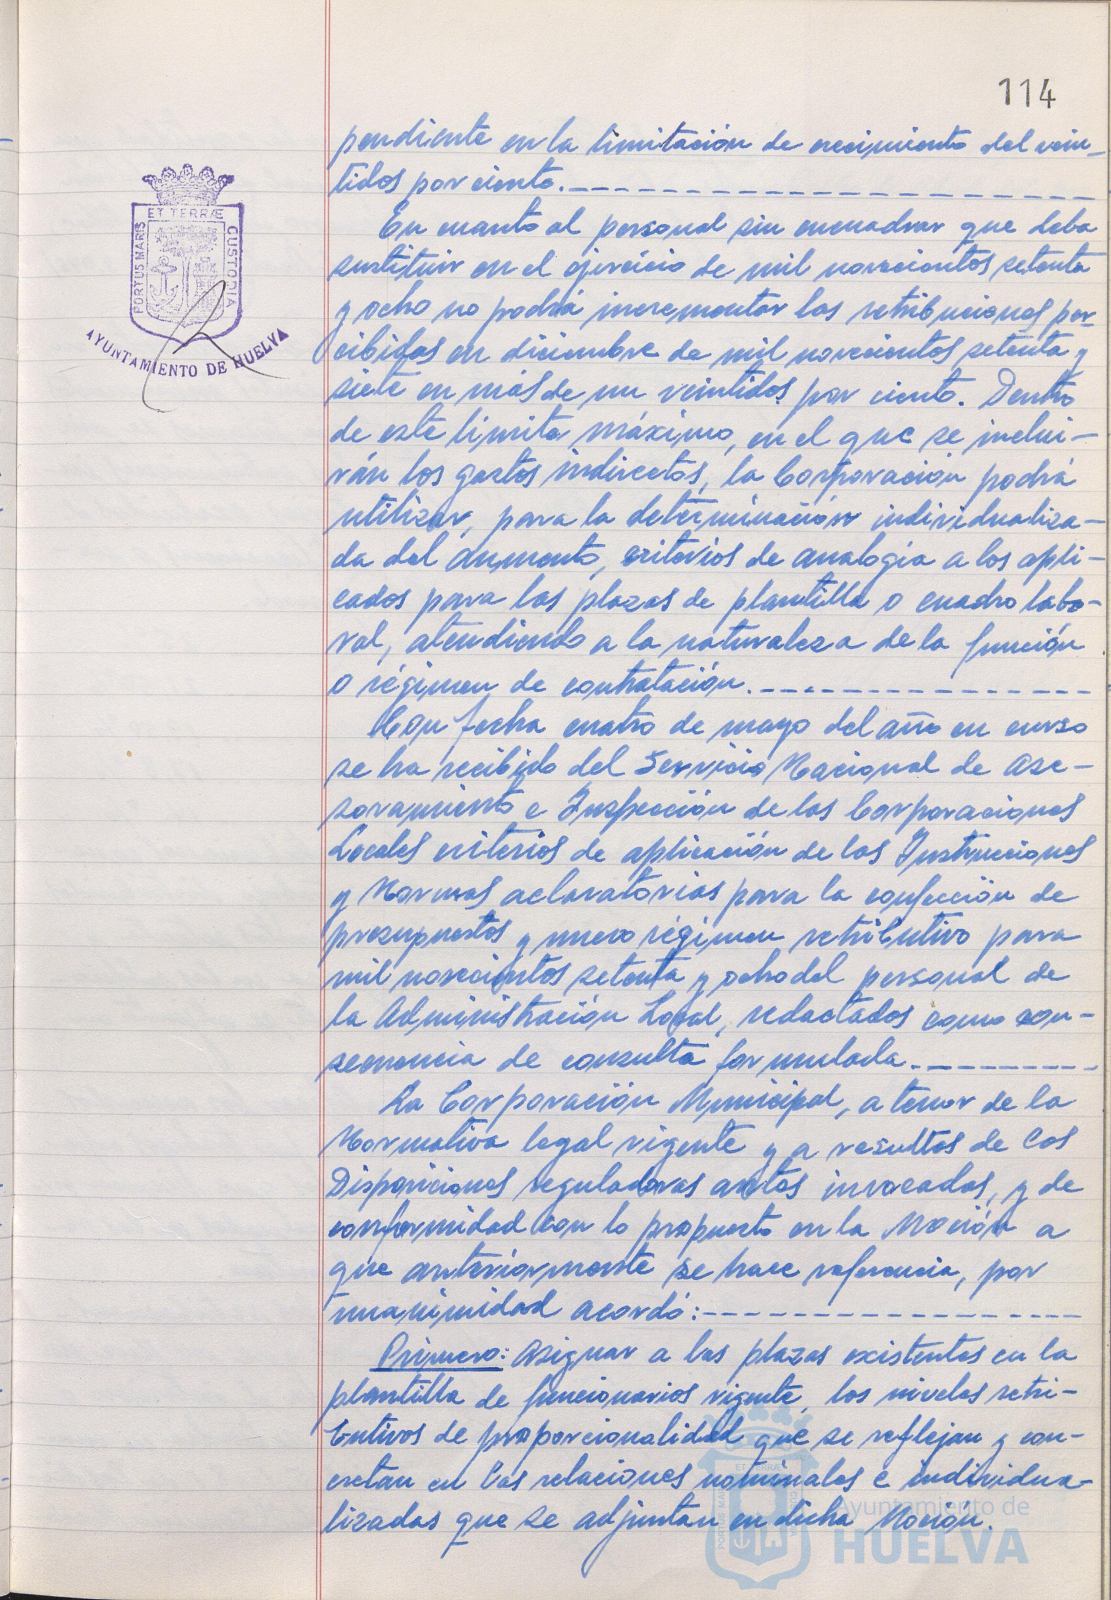 114
pendiente en la limitación de crecimiento del vein-
tidos por ciento.
En cuanto al personal sin encuadrar que deba
sustituir en el ejercicio de mil novecientos setenta
y ocho no podrá incrementar las retribuciones per-
cibidas en diciembre de mil novecientos setenta y
siete en más de un veintidos por ciento. Dentro
de este límite máximo, en el que se inclui-
rán los gastos indirectos, la Corporación podrá
utilizar, para la determinación individualiza-
da del aumento, criterios de analogía a los apli-
cados para las plazas de plantilla o cuadro labo-
ral, atendiendo a la naturaleza de la función
o régimen de contratación.
Con fecha cuatro de mayo del año en curso
se ha recibido del Servicio Nacional de Ase-
soramiento e Inspección de las Corporaciones
Locales criterios de aplicación de las Instrucciones
y Normas aclaratorias para la confección de
presupuestos y nuevo régimen retributivo para
mil novecientos setenta y ocho del personal de
la Administración Local, redactados como con-
secuencia de consulta formulada.
La Corporación Municipal, a tenor de la
Normativa legal vigente y a resultas de las
Disposiciones reguladoras antes invocadas, y de
conformidad con lo propuesto en la Moción a
que anteriormente se hace referencia, por
unanimidad acordó:
Primero: Asignar a las plazas existentes en la
plantilla de funcionarios vigente, los niveles retri-
butivos de proporcionalidad que se reflejan y con-
cretan en las relaciones nominales e individua-
lizadas que se adjuntan en dicha Moción.
PORTUS MARIS
ET TERRÆ
CUSTODIA
AYUNTAMIENTO DE HUELVA
Ayuntamiento de
HUELVA